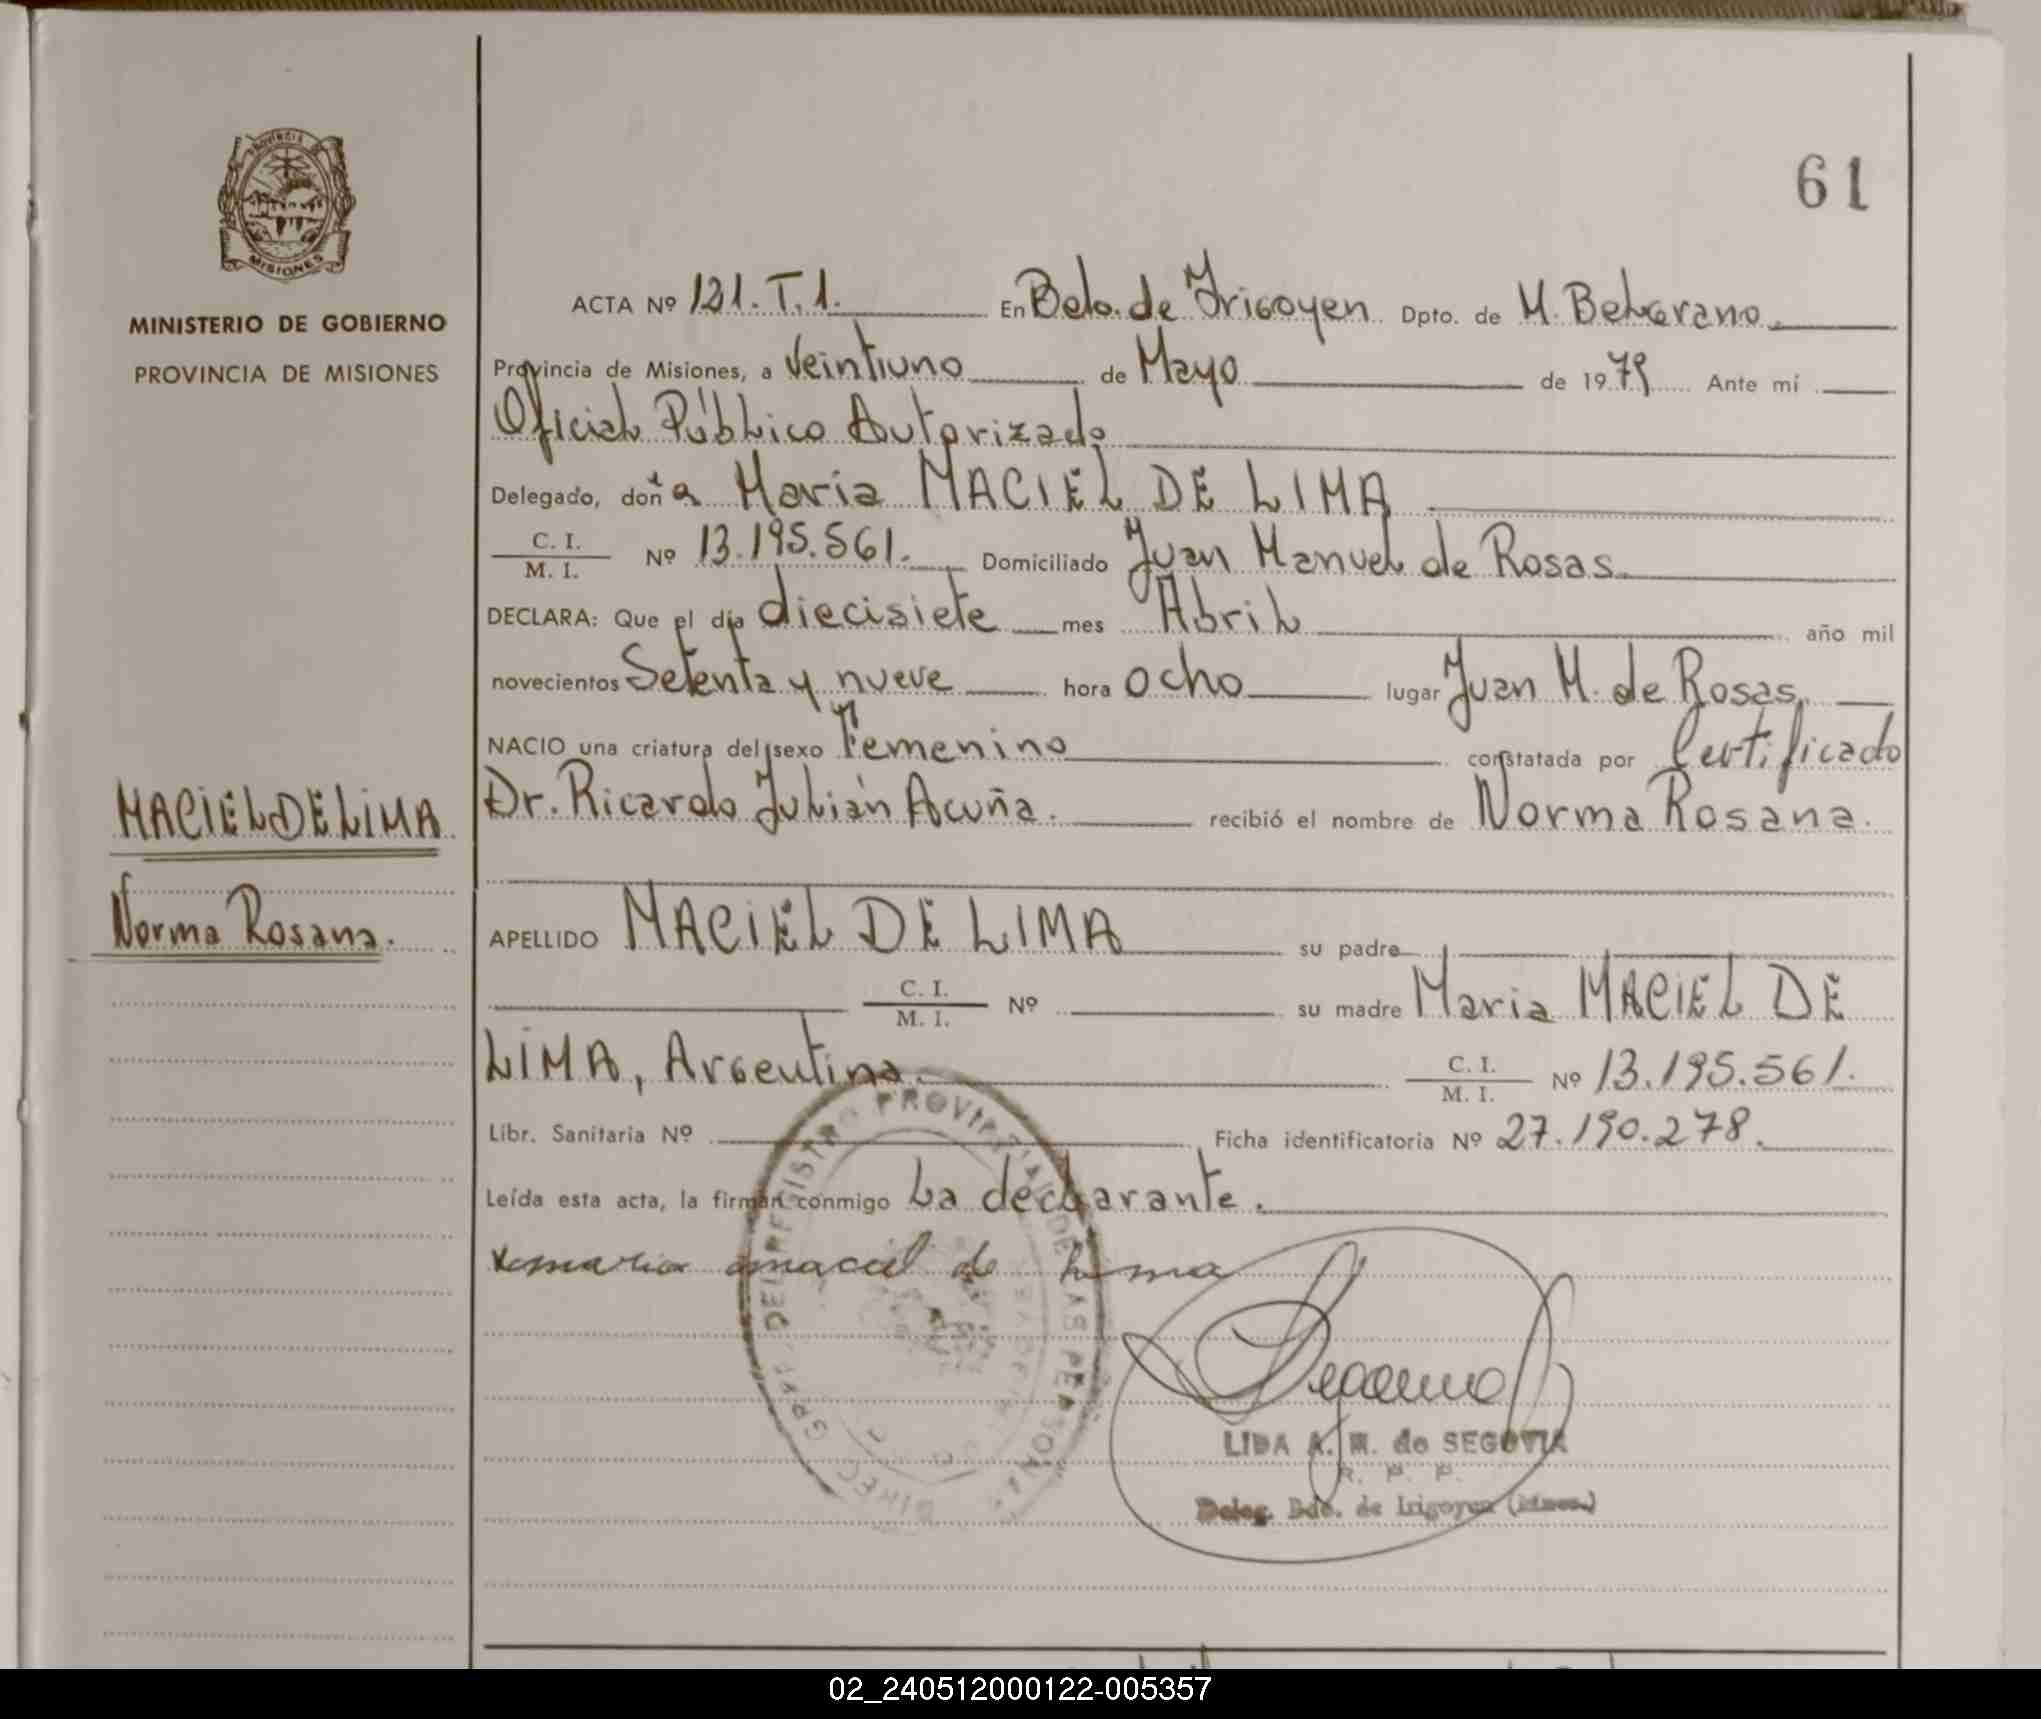 61
PROVINCIA DE
MISIONES
MINISTERIO DE GOBIERNO
PROVINCIA DE MISIONES
ACTA Nº 121. T. 1. En Bdo. de Irigoyen Dpto. de M. Belgrano.
Provincia de Misiones, a Veintiuno de Mayo de 1979 Ante mí
Oficial Público Autorizado
Delegado, doña Maria MACIEL DE LIMA
C. I.
M. I. Nº 13.195.561. Domiciliado Juan Manuel de Rosas.
DECLARA: Que el día diecisiete mes Abril año mil
novecientos Setenta y nueve hora ocho lugar Juan M. de Rosas.
NACIO una criatura del sexo Femenino constatada por Certificado
Dr. Ricardo Julián Acuña. recibió el nombre de Norma Rosana.
MACIEL DE LIMA
Norma Rosana.
APELLIDO MACIEL DE LIMA su padre
C. I.
M. I. Nº su madre Maria MACIEL DE
LIMA, Argentina. C. I.
M. I. Nº 13.195.561.
Libr. Sanitaria Nº Ficha identificatoria Nº 27.190.278.
Leída esta acta, la firman conmigo La declarante.
maria maciel de lima
DEL REGISTRO PROVINCIAL DE LAS PERSONAS
LIDA A. M. de SEGOVIA
R. P. P.
Deleg. Bdo. de Irigoyen (Mnes.)
02_240512000122-005357